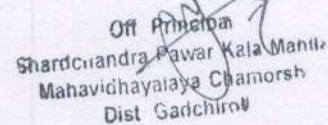 Off Principal
Shardchandra Pawar Kala Mahila
Mahavidhayalaya Chamorsh
Dist Gadchiroli